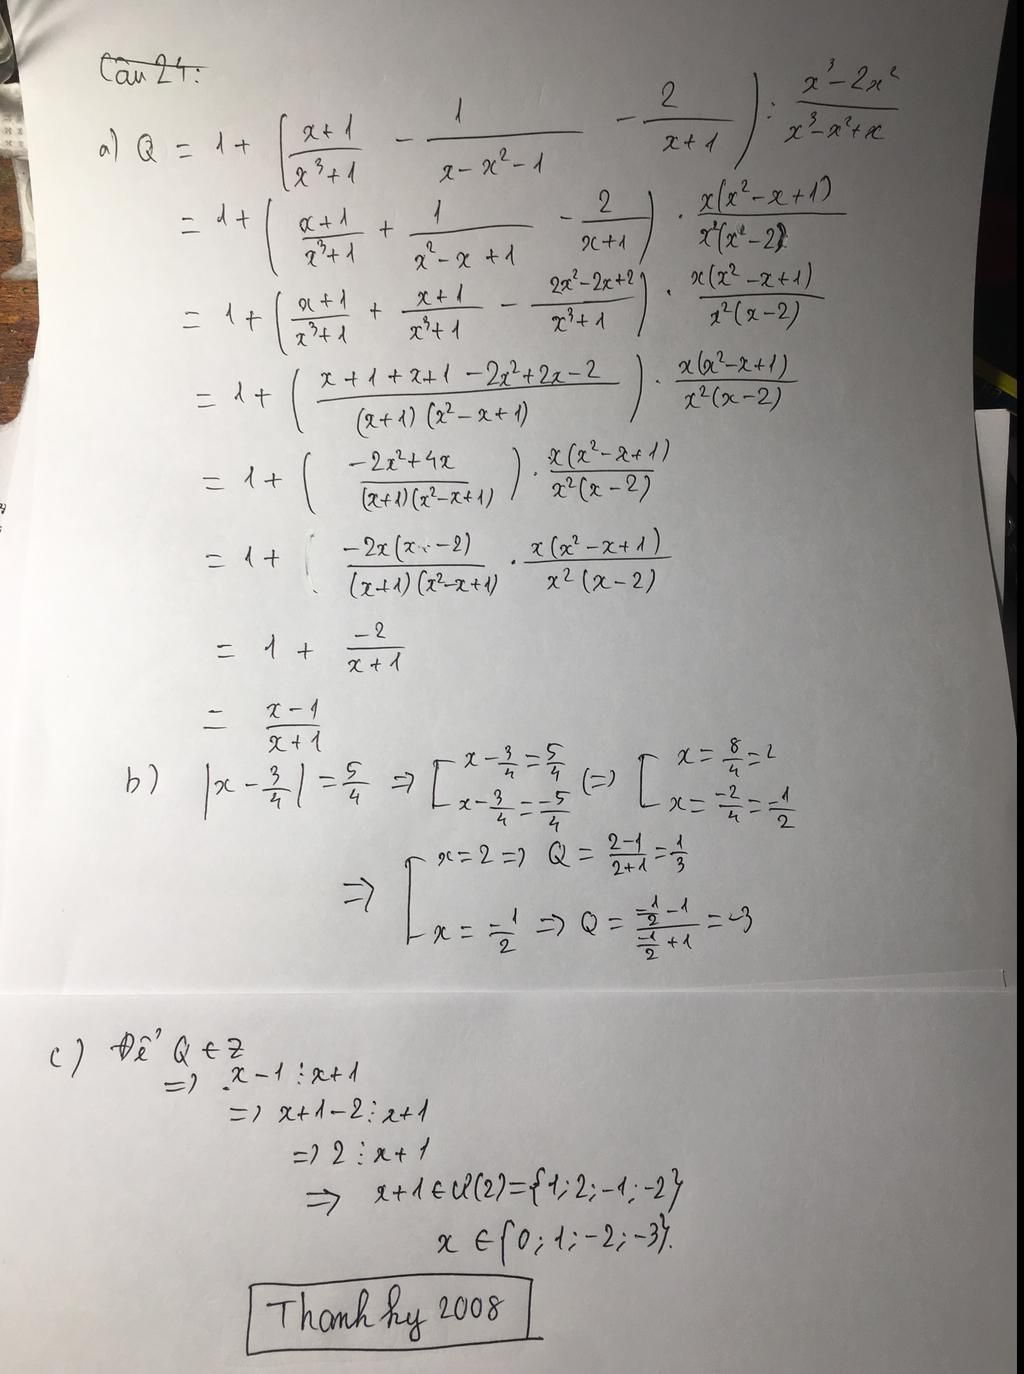 Câu 24:
a) Q = 1 + ( (x+1)/(x³+1) - 1/(x-x²-1) - 2/(x+1) ) : (x³-2x²)/(x³-x²+x)
= 1 + ( (x+1)/(x³+1) + 1/(x²-x+1) - 2/(x+1) ) . x(x²-x+1)/(x²(x-2))
= 1 + ( (x+1)/(x³+1) + (x+1)/(x³+1) - (2x²-2x+2)/(x³+1) ) . x(x²-x+1)/(x²(x-2))
= 1 + ( (x+1+x+1-2x²+2x-2)/((x+1)(x²-x+1)) ) . x(x²-x+1)/(x²(x-2))
= 1 + ( (-2x²+4x)/((x+1)(x²-x+1)) ) . x(x²-x+1)/(x²(x-2))
= 1 + ( -2x(x-2)/((x+1)(x²-x+1)) . x(x²-x+1)/(x²(x-2))
= 1 + -2/(x+1)
= (x-1)/(x+1)
b) |x - 3/4| = 5/4 => [ x - 3/4 = 5/4 (=) [ x = 8/4 = 2
x - 3/4 = -5/4 x = -2/4 = -1/2
=> [ x = 2 => Q = (2-1)/(2+1) = 1/3
x = -1/2 => Q = (-1/2 - 1)/(-1/2 + 1) = -3
c) Để Q ∈ Z
=> x-1 ⋮ x+1
=> x+1-2 ⋮ x+1
=> 2 ⋮ x+1
=> x+1 ∈ Ư(2) = {1; 2; -1; -2}
x ∈ {0; 1; -2; -3}.
Thanh hy 2008